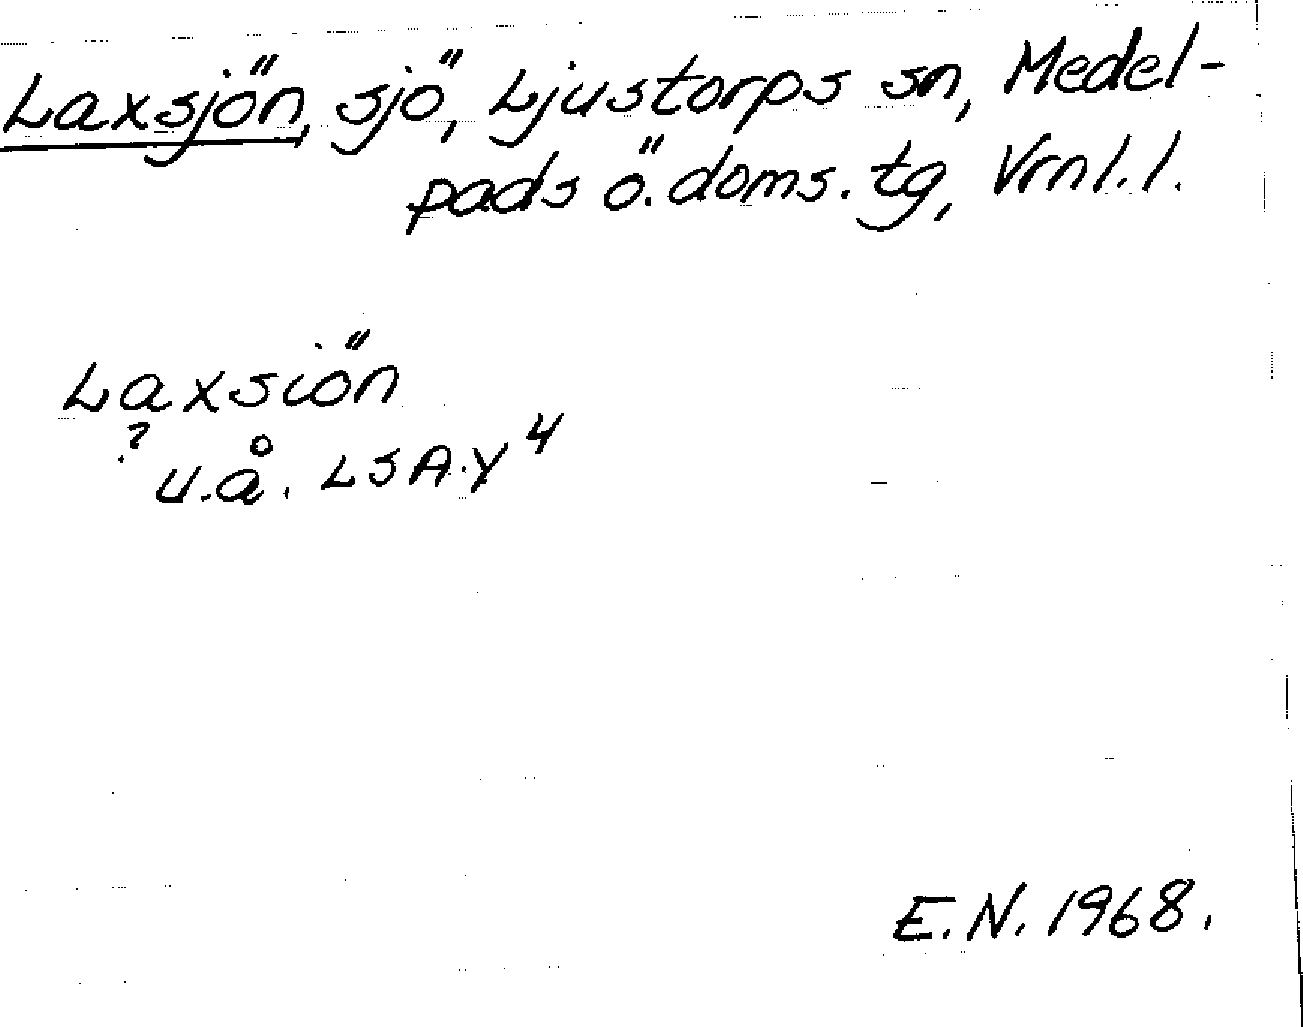 Laxsjön, sjö, Ljustorps sn, Medel-
pads ö. doms. tg, Vrnl. l.
Laxsiön
? u.å. LSA.Y⁴
E.N. 1968.